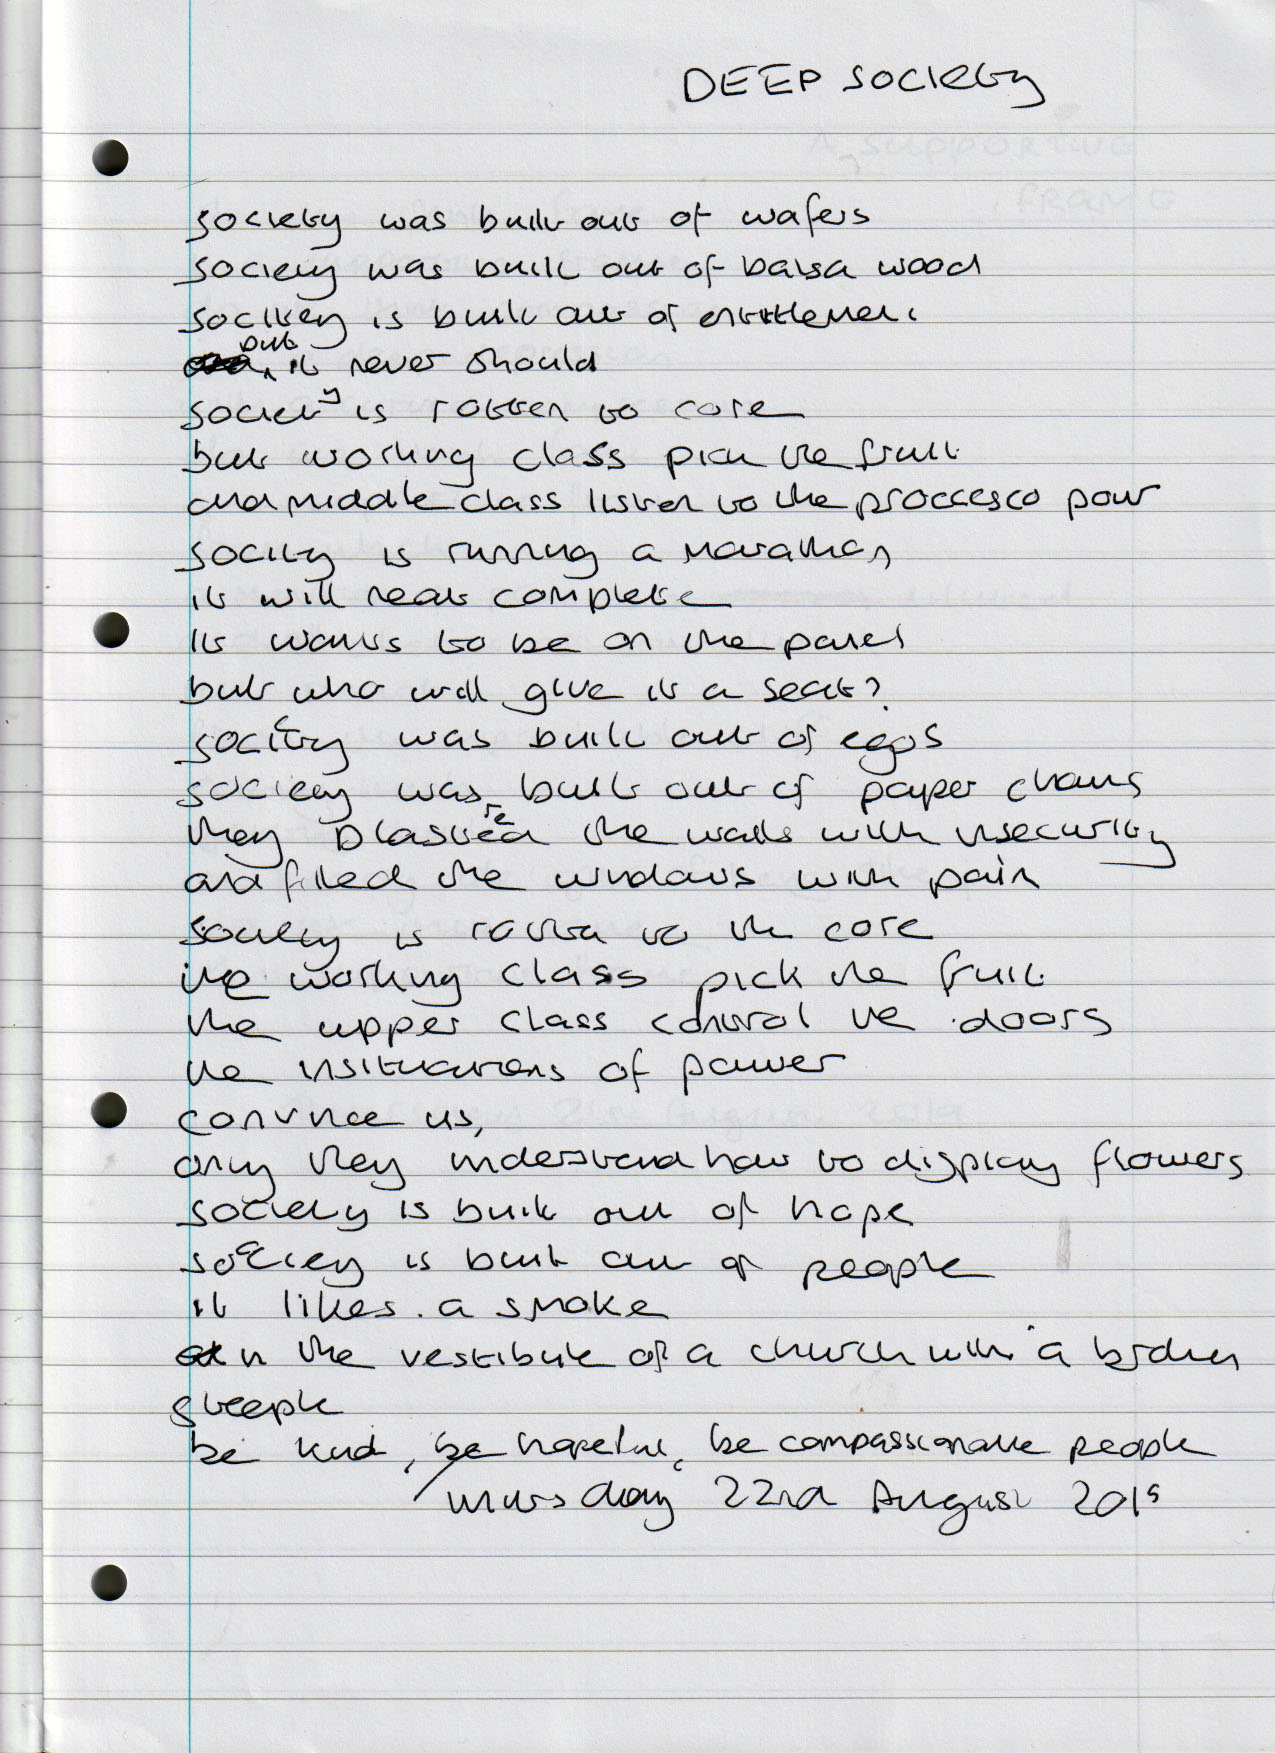 DEEP SOCIETY
society was built out of wafers
society was built out of balsa wood
society is built out of entitlement
but it never should
society is rotten to core
but working class pick the fruit
and middle class listen to the proccesco pour
society is running a marathon
it will neat complete
it wants to be on the panel
but who will give it a seat?
society was built out of eggs
society was built out of paper chains
they plastered the walls with insecurity
and filled the windows with pain
society is rotten to the core
the working class pick the fruit
the upper class control the doors
the insituations of power
convince us,
only they understand how to display flowers
society is built out of hope
society is built out of people
it likes a smoke
in the vestibule of a church with a broken
steeple
be kind, be hopeful, be compassionate people
Thursday 22nd August 2019
A SUPPORTIVE
FRAME